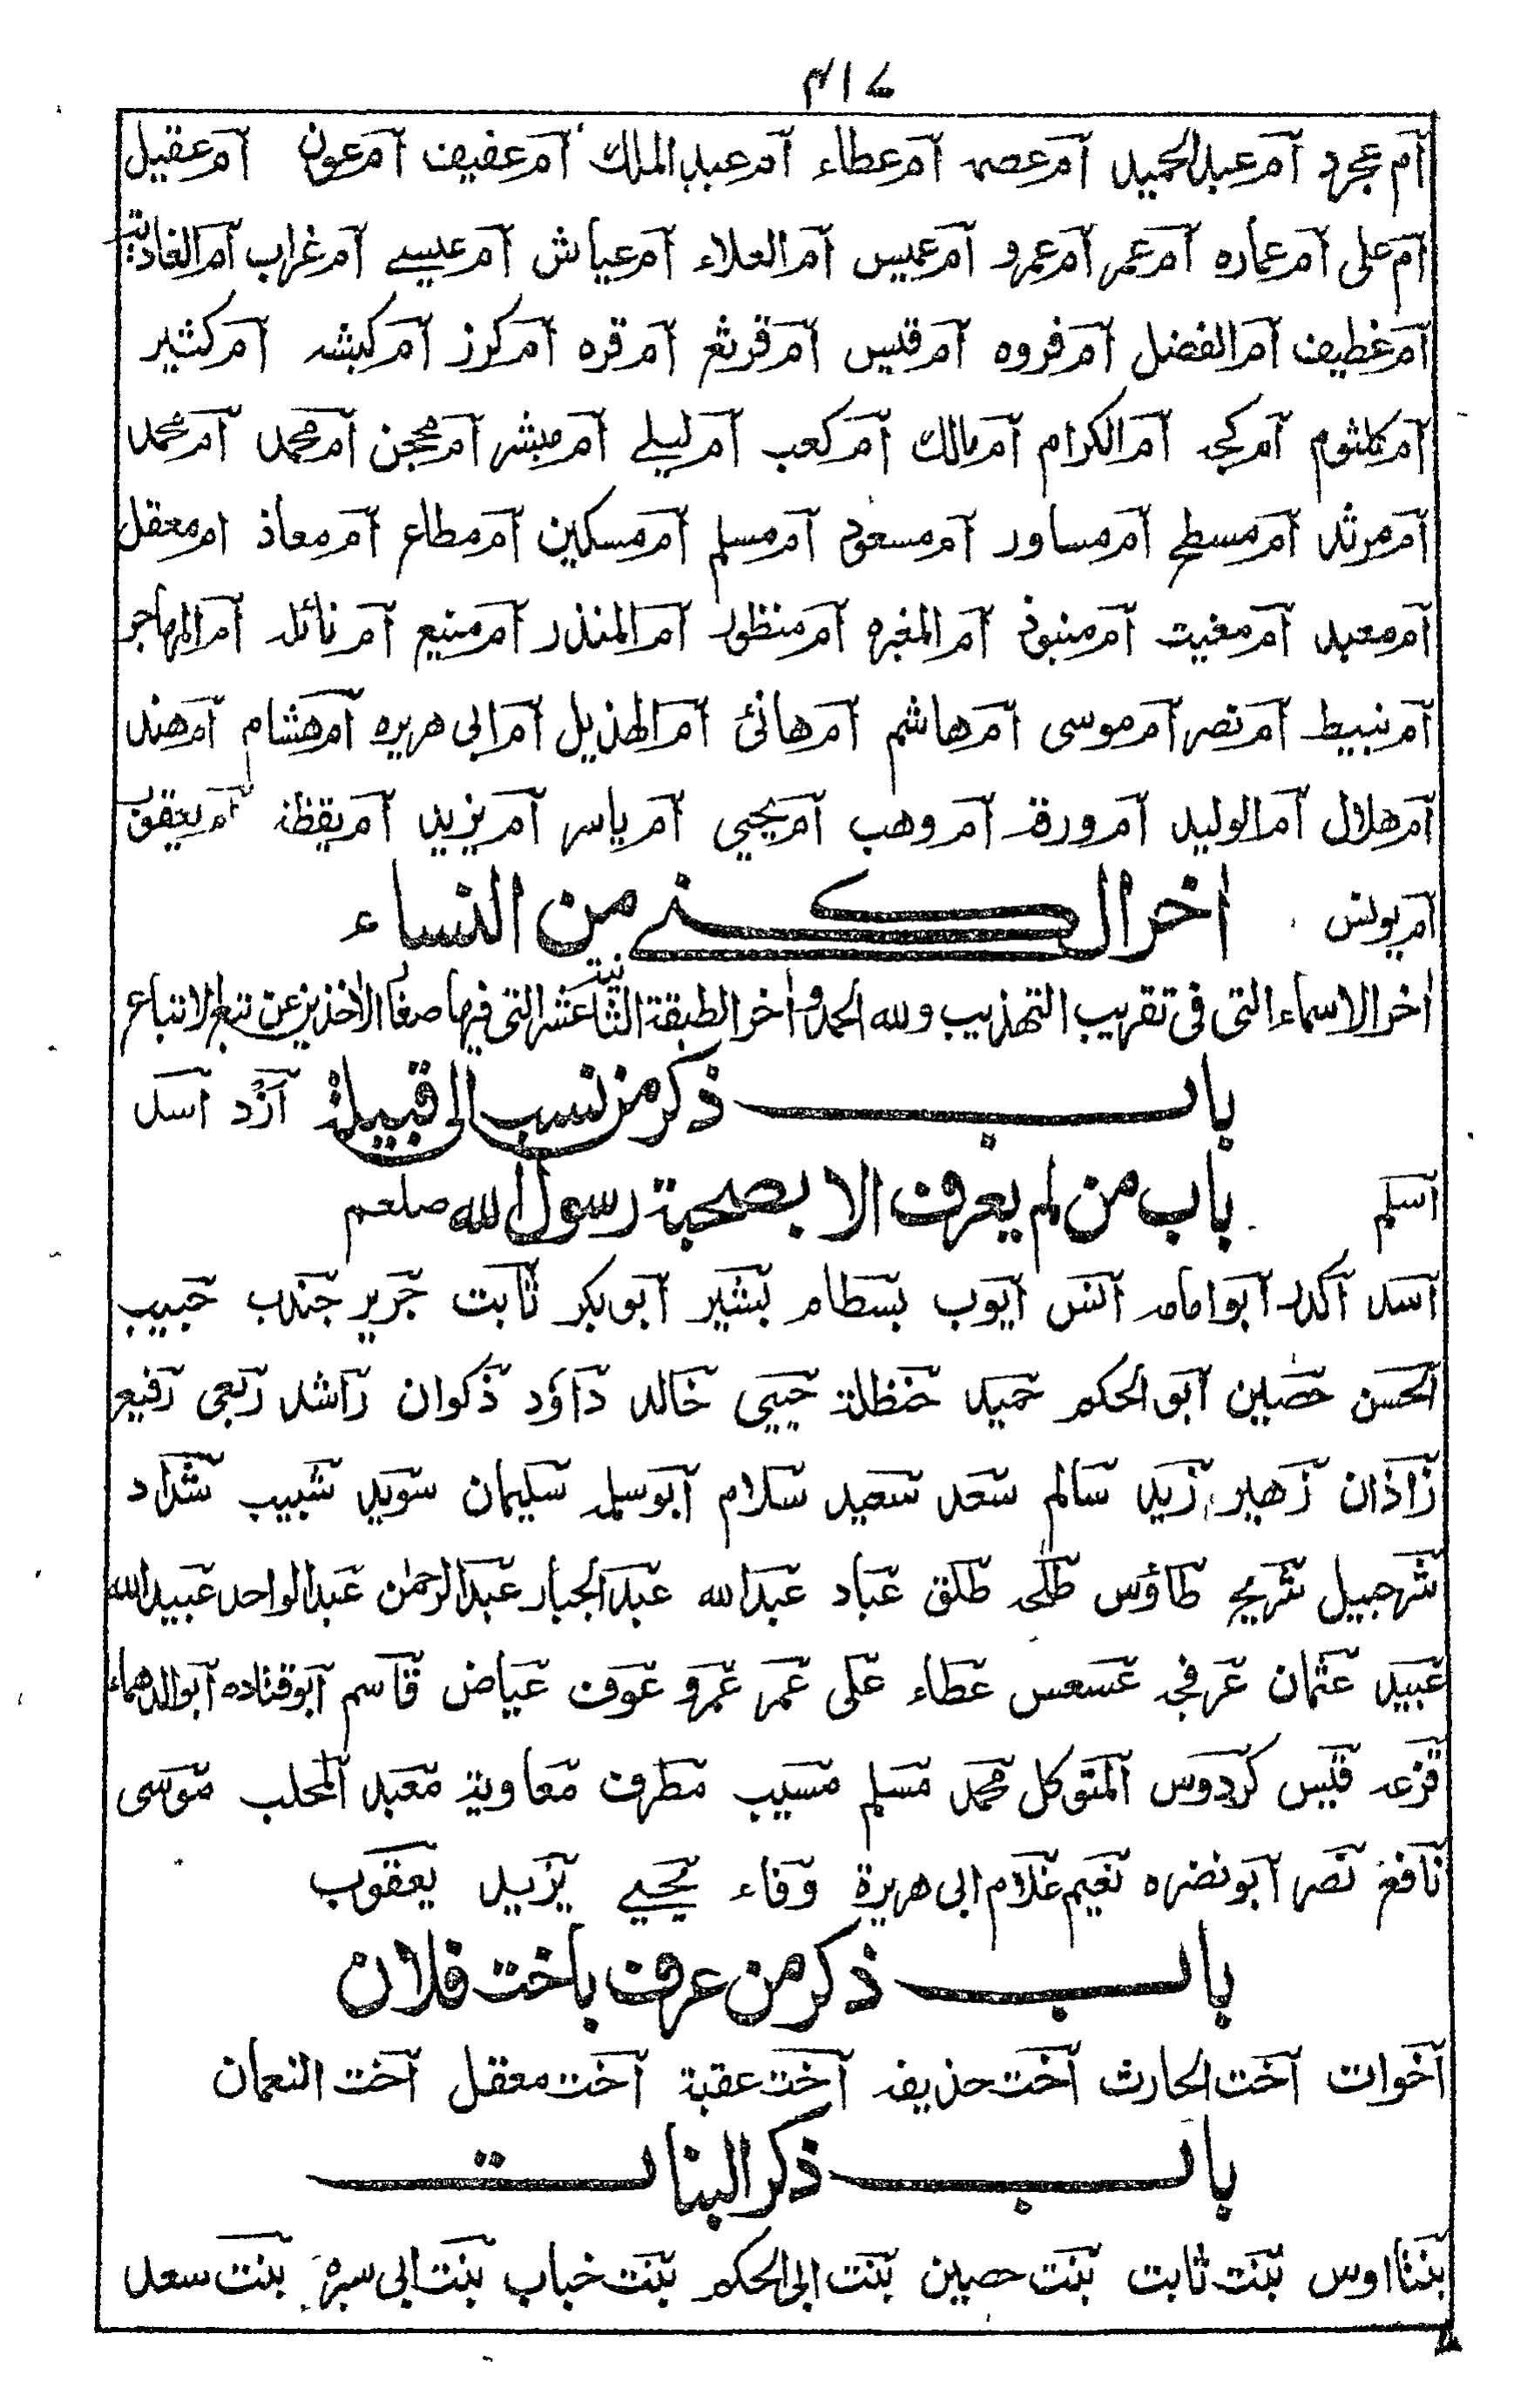 ٤١٧
ام عجرد ام عبد الحميد ام عصمه ام عطاء ام عبد الملك ام عفيف ام عون ام عقيل
ام على ام عماره ام عمر ام عمرو ام عميس ام العلاء ام عياش ام عيسے ام غراب ام الغادية
ام غطيف ام الفضل ام فروه ام قيس ام قرثع ام قره ام كرز ام كبشه ام كثير
ام كلثوم ام كجه ام الكرام ام مالك ام كعب ام ليلے ام مبشر ام محجن ام محمد ام محمد
ام مرثد ام مسطح ام مساور ام مسعود ام مسلم ام مسكين ام مطاع ام معاذ ام معقل
ام معبد ام مغيث ام منبوذ ام المغيره ام منظور ام المنذر ام منيع ام نائله ام المهاجر
ام نبيط ام نصر ام موسى ام هاشم ام هانئ ام الهذيل ام ابى هريره ام هشام ام هند
ام هلال ام الوليد ام ورقه ام وهب ام يحيي ام ياسر ام يزيد ام يقظة ام يعقوب
ام يونس اخر الكنے من النساء
اخر الاسماء التى فى تقريب التهذيب ولله الحمد واخر الطبقة الثانية عشر التى فيها صغار الاخذين عن تبع الاتباع
باب ذكر من نسب الى قبيلة ازد اسد
اسلم باب من لم يعرف الا بصحبة رسول الله صلعم
اسد اكدر ابو امامه انس ايوب بسطام بشير ابو بكر ثابت جرير جندب حبيب
الحسن حصين ابو الحكم حميد حنظلة حيي خالد داؤد ذكوان راشد ربعى رفيع
زاذان زهير زيد سالم سعد سعيد سلام ابو سلمه سليمان سويد شبيب شداد
شرحبيل شريح طاؤس طلحه طلق عباد عبد الله عبد الجبار عبد الرحمن عبد الواحد عبيد الله
عبيد عثمان عرفجه عسعس عطاء على عمر عمرو عوف عياض قاسم ابو قتاده ابو الدهماء
قزعه قيس كردوس المتوكل محمد مسلم مسيب مطرف معاوية معبد المحلب موسى
نافع نصر ابو نضره نعيم غلام ابى هريرة وفاء يحيے يزيد يعقوب
باب ذكر من عرف باخت فلان
اخوات اخت الحارث اخت حذيفه اخت عقبة اخت معقل اخت النعمان
باب ذكر البنات
بنتا اوس بنت ثابت بنت حصين بنت ابى الحكم بنت خباب بنت ابى سبرة بنت سعد